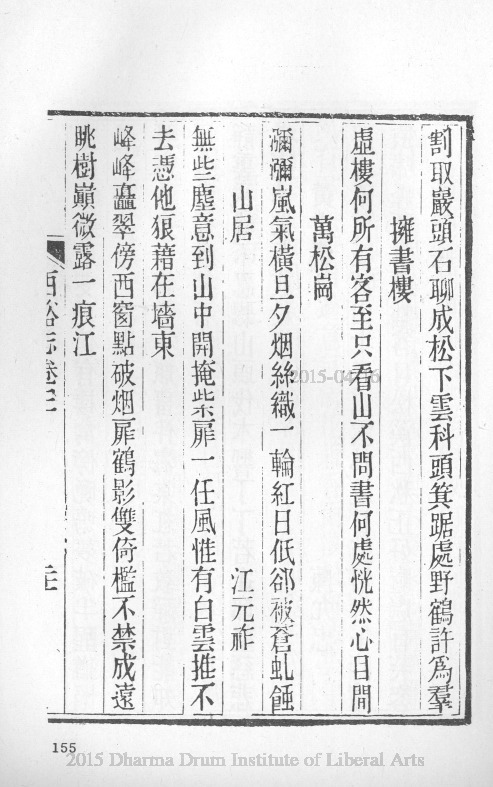 割取巖頭石聊成松下雲科頭箕踞處野鶴許爲羣
擁書樓
虛樓何所有客至只看山不問書何處恍然心目間
萬松崗
瀰瀰嵐氣橫旦夕烟絲織一輪紅日低郤被蒼虬蝕
山居 江元祚
無些塵意到山中開掩柴扉一任風惟有白雲推不
去憑他狼藉在墻東
峰峰矗翠傍西窗點破烟扉鶴影雙倚檻不禁成遠
眺樹巔微露一痕江
155
2015-04-16
2015 Dharma Drum Institute of Liberal Arts